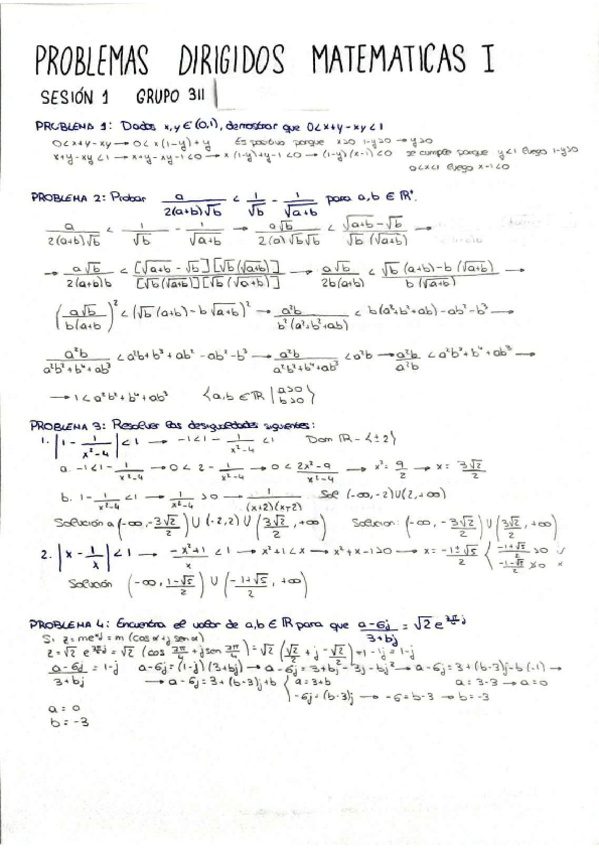 PROBLEMAS DIRIGIDOS MATEMATICAS I
SESIÓN 1 GRUPO 311
PROBLEMA 1: Dados x,y ∈ (0,1), demostrar que 0<x+y-xy<1
0<x+y-xy → 0<x(1-y)+y Es positivo porque x>0 1-y>0 → y>0
x+y-xy<1 → x+y-xy-1<0 → x(1-y)+y-1<0 → (1-y)(x-1)<0 se cumple porque y<1 luego 1-y>0
0<x<1 luego x-1<0
PROBLEMA 2: Probar a/2(a+b)√b < 1/√b - 1/√a+b para a,b ∈ ℝ⁺.
a/2(a+b)√b < 1/√b - 1/√a+b → a√b/2(a)√b√b < √a+b-√b/√b(√a+b)
→ a√b/2(a+b)b < [√a+b - √b][√b(√a+b)]/[√b(√a+b)][√b(√a+b)] → a√b/2b(a+b) < √b(a+b)-b(√a+b)/b(√a+b) →
(a√b/b(a+b))² < (√b(a+b)-b√a+b)² → a²b/b²(a²+b²+ab) < b(a²+b²+ab)-ab²-b³ →
a²b/a²b²+b⁴+ab³ < a²b+b³+ab²-ab²-b³ → a²b/a²b²+b⁴+ab³ < a²b → a²b/a²b < a²b²+b⁴+ab³ →
→ 1<a²b²+b⁴+ab³ {a,b ∈ ℝ | a>0 b>0}
PROBLEMA 3: Resolver las desigualdades siguientes:
1. |1 - 1/x²-4| < 1 → -1<1 - 1/x²-4 <1 Dom ℝ - {±2}
a. -1<1 - 1/x²-4 → 0<2 - 1/x²-4 → 0< 2x²-9/x²-4 → x² = 9/2 → x = 3√2/2
b. 1 - 1/x²-4 <1 → 1/x²-4 >0 → 1/(x+2)(x-2) Sol (-∞,-2)∪(2,+∞)
Solución a (-∞, -3√2/2) ∪ (-2,2) ∪ (3√2/2, +∞) Solucion: (-∞, -3√2/2) ∪ (3√2/2, +∞)
2. |x - 1/x| < 1 → -x²+1/x < 1 → x²+1<x → x²+x-1>0 → x = -1±√5/2 { -1+√5/2 >0 ✓ -1-√5/2 >0 x
Solución (-∞, 1-√5/2) ∪ (-1+√5/2, +∞)
PROBLEMA 4: Encuentra el valor de a,b ∈ ℝ para que a-6j/3+bj = √2 e
Si z = m = m(cos α + j sen α)
z = √2 = √2 (cos + j sen) = √2 (√2/2 + j - √2/2) = 1-j = 1-j
a-6j/3+bj = 1-j a-6j = (1-j)(3+bj) → a-6j = 3+bj-3j-bj² → a-6j = 3+(b-3)j-b(-1) →
→ a-6j = 3+(b-3)j+b { a = 3+b a = 3-3 → a = 0
-6j = (b-3)j → -6 = b-3 → b = -3
a = 0
b = -3